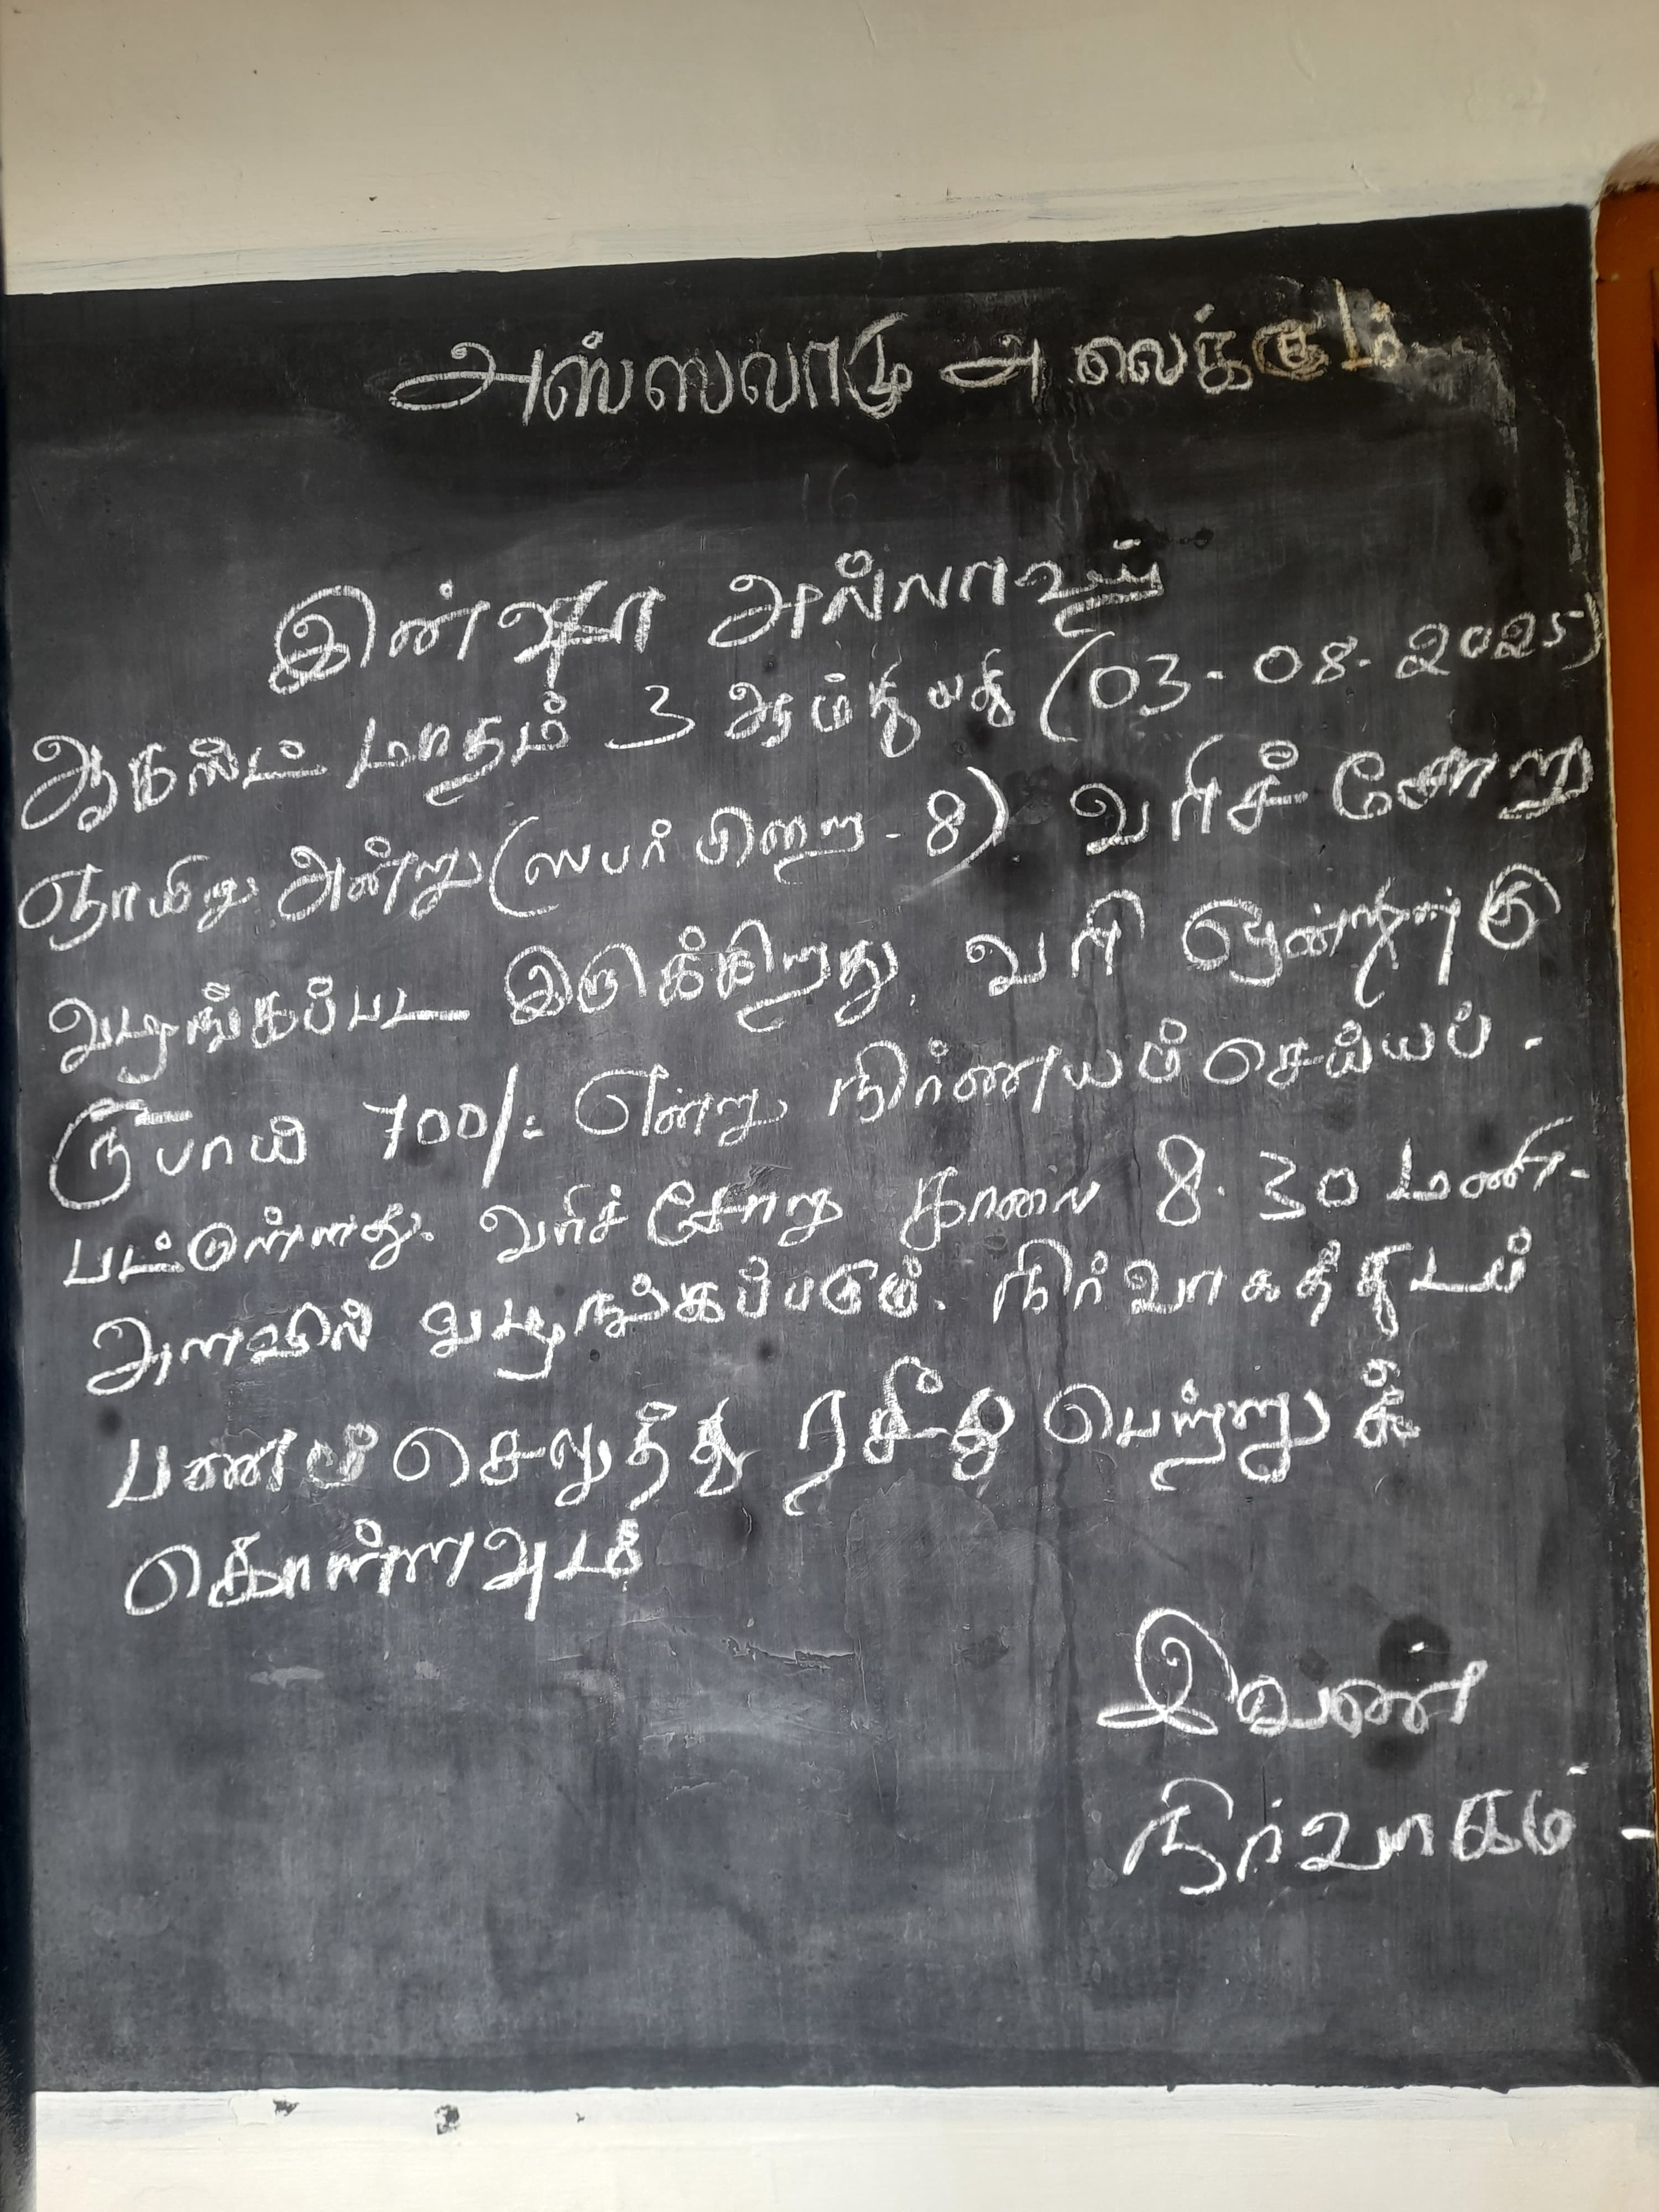 அஸ்ஸலாமு அலைக்கும்
இன்ஷா அல்லாஹ்
ஆகஸ்ட் மாதம் 3 ஆம் தேதி (03-08-2025)
ஞாயிறு அன்று (ஸபர் பிறை - 8) வரிச் சோறு
வழங்கப்பட இருக்கிறது. வரி ஒன்றுக்கு
ரூபாய் 700/- என்று நிர்ணயம் செய்யப் -
பட்டுள்ளது. வரிச் சோறு காலை 8.30 மணி -
அளவில் வழங்கப்படும். நிர்வாகத்துடம்
பணம் செலுத்தி ரசீது பெற்றுக்
கொள்ளவும்
இவண்
நிர்வாகம் -